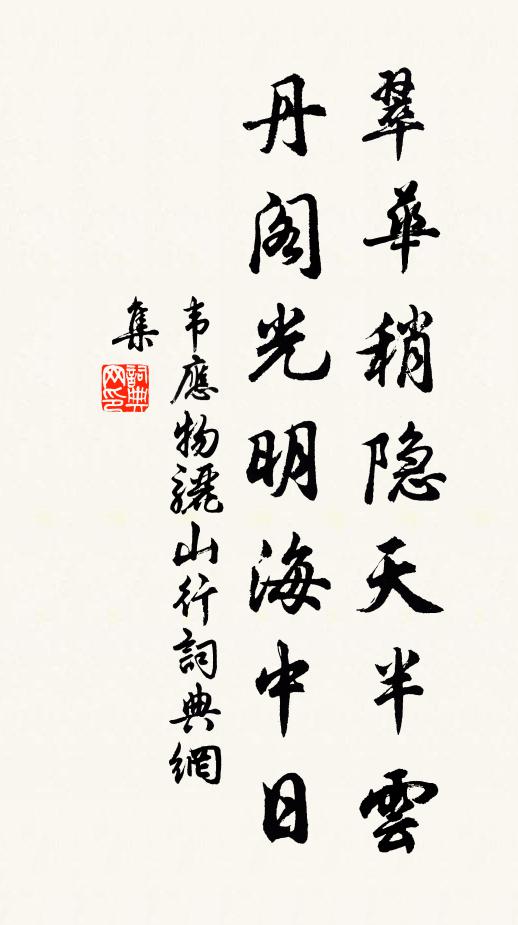 翠華稍隐天半雲
丹阁光明海中日
韦應物驪山行詞典網
集
詞典
网印